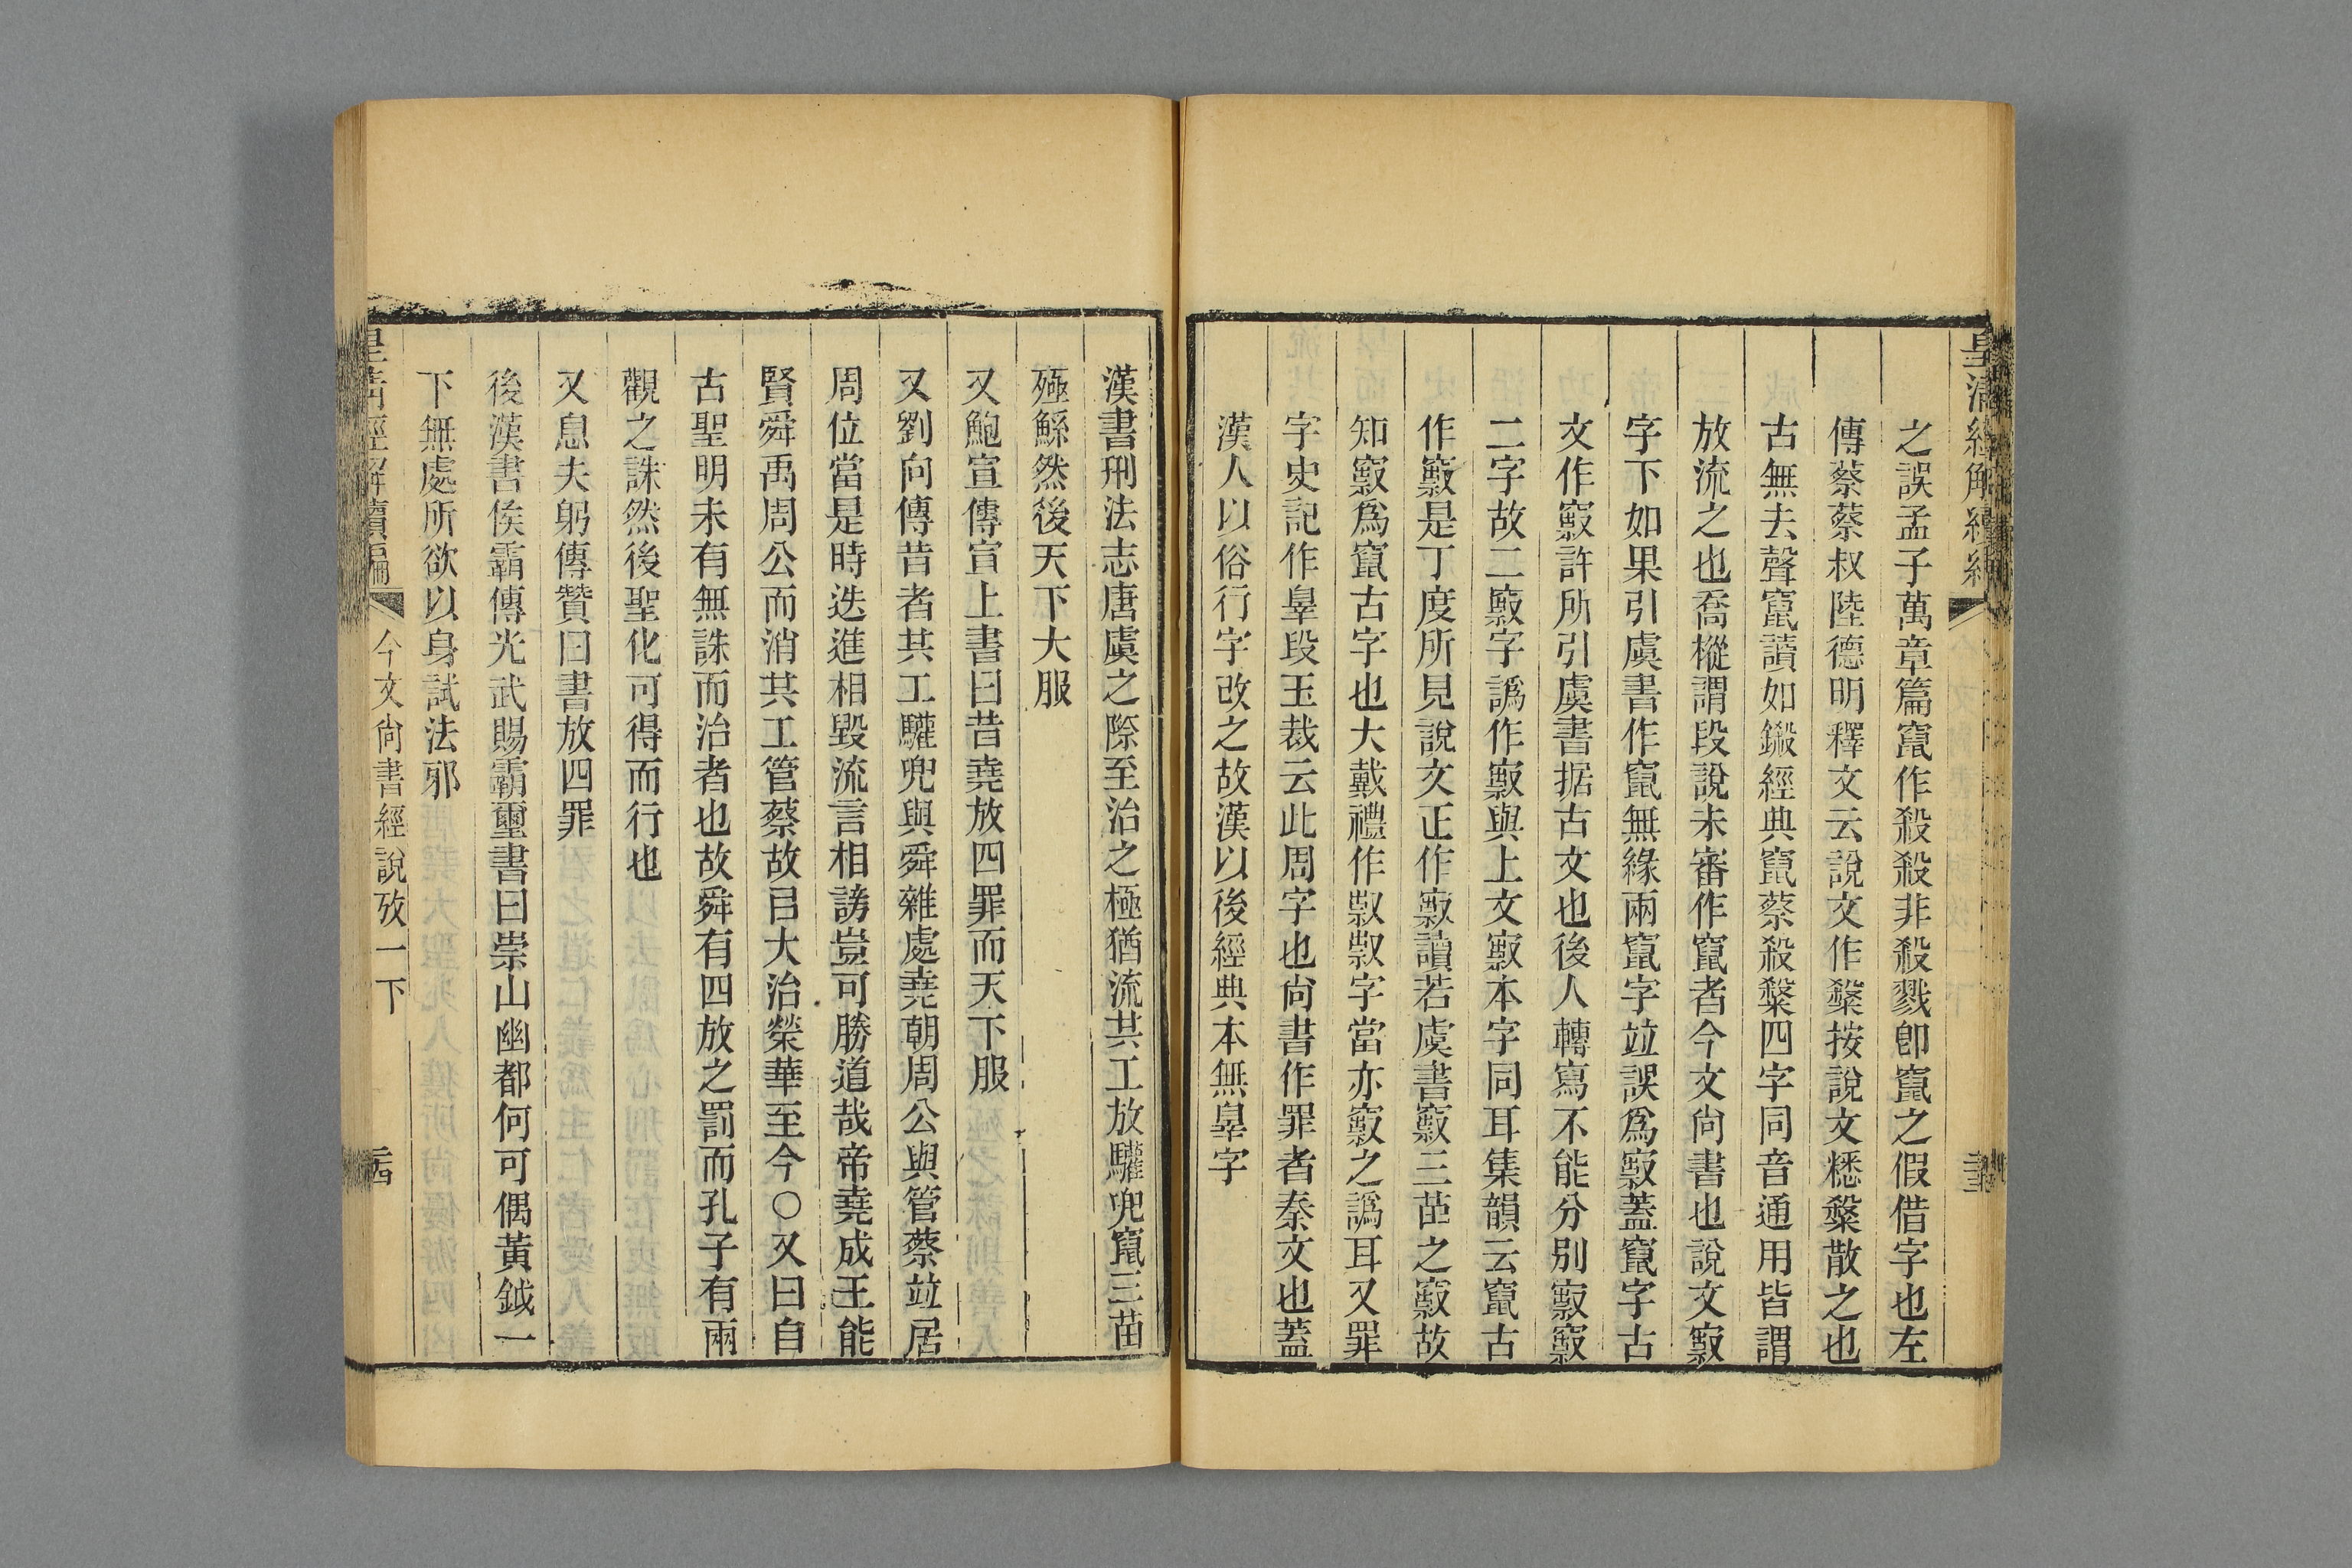 皇清經解續編
之誤孟子萬章篇竄作殺殺非殺戮卽竄之假借字也左
傳蔡蔡叔陸德明釋文云說文作䊝按說文𥻦䊝散之也
古無去聲竄讀如鎩經典竄蔡殺䊝四字同音通用皆謂
放流之也喬樅謂段說未審作竄者今文尙書也說文㝮
字下如果引虞書作竄無緣兩竄字竝誤爲㝮蓋竄字古
文作㝮許所引虞書据古文也後人轉寫不能分別㝮竅
二字故二竅字譌作㝮與上文㝮本字同耳集韻云竄古
作竅是丁度所見說文正作㝮讀若虞書竅三苗之竅故
知竅爲竄古字也大戴禮作㱁㱁字當亦竅之譌耳又罪
字史記作辠段玉裁云此周字也尙書作罪者秦文也蓋
漢人以俗行字改之故漢以後經典本無辠字
漢書刑法志唐虞之際至治之極猶流共工放驩兜竄三苗
殛鯀然後天下大服
又鮑宣傳宣上書曰昔堯放四罪而天下服
又劉向傳昔者共工驩兜與舜雜處堯朝周公與管蔡竝居
周位當是時迭進相毀流言相謗豈可勝道哉帝堯成王能
賢舜禹周公而消共工管蔡故㠯大治榮華至今○又曰自
古聖明未有無誅而治者也故舜有四放之罰而孔子有兩
觀之誅然後聖化可得而行也
又息夫躬傳贊曰書放四罪
後漢書侯霸傳光武賜霸璽書曰崇山幽都何可偶黃鉞一
下無處所欲以身試法邪
皇清經解續編
今文尙書經說攷一下